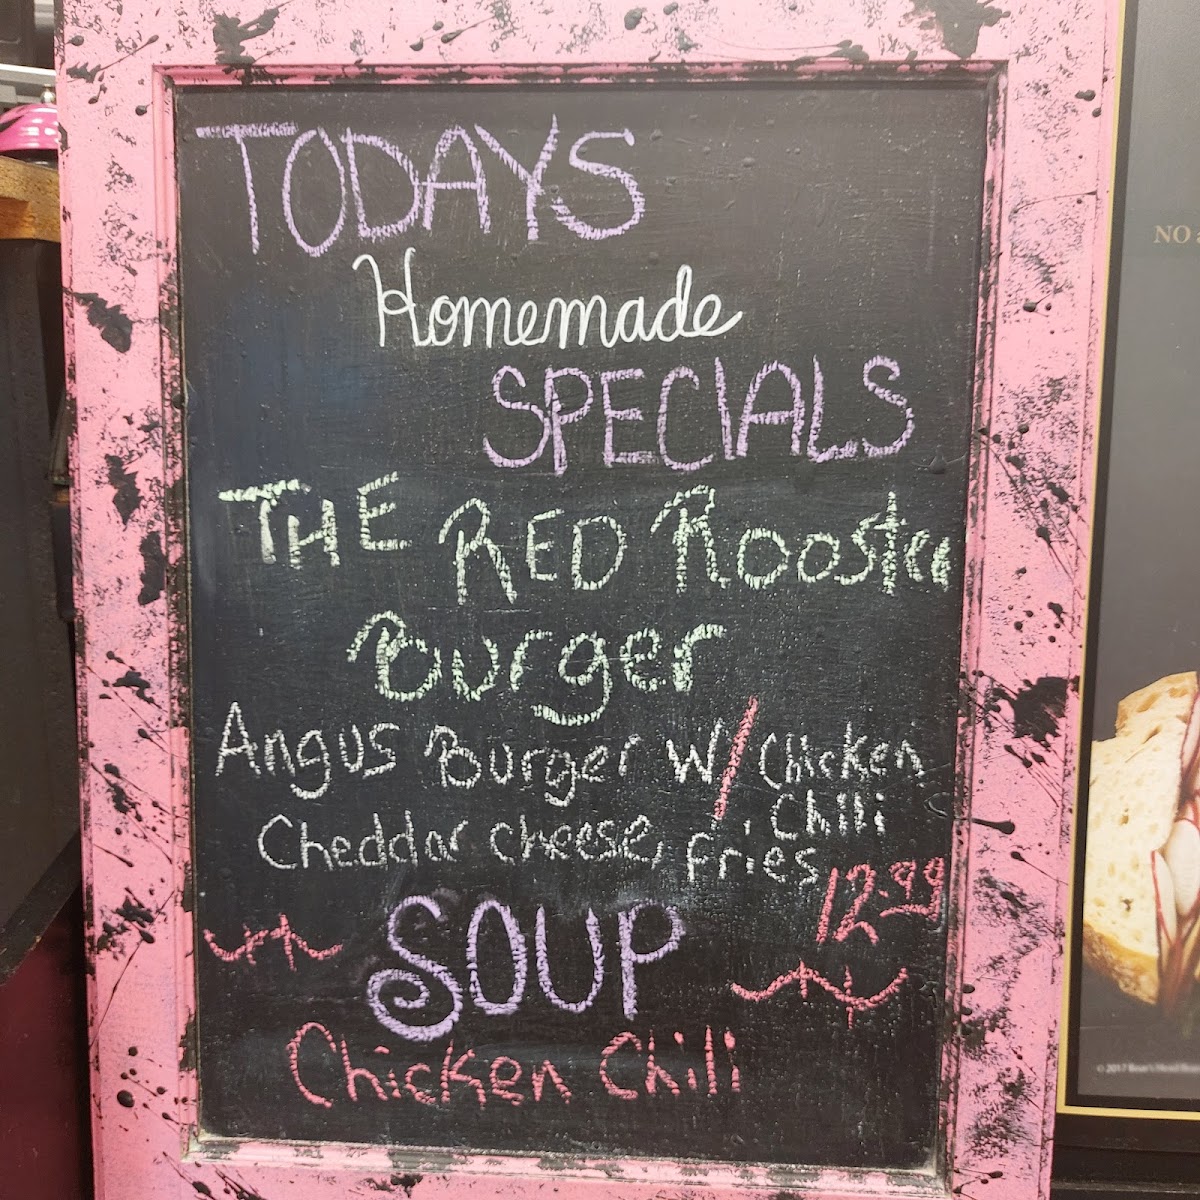 TODAYS
Homemade
SPECIALS
THE RED Rooster
Burger
Angus Burger W/ Chicken
Chili
Cheddar cheese, fries
12.99
SOUP
Chicken Chili
NO